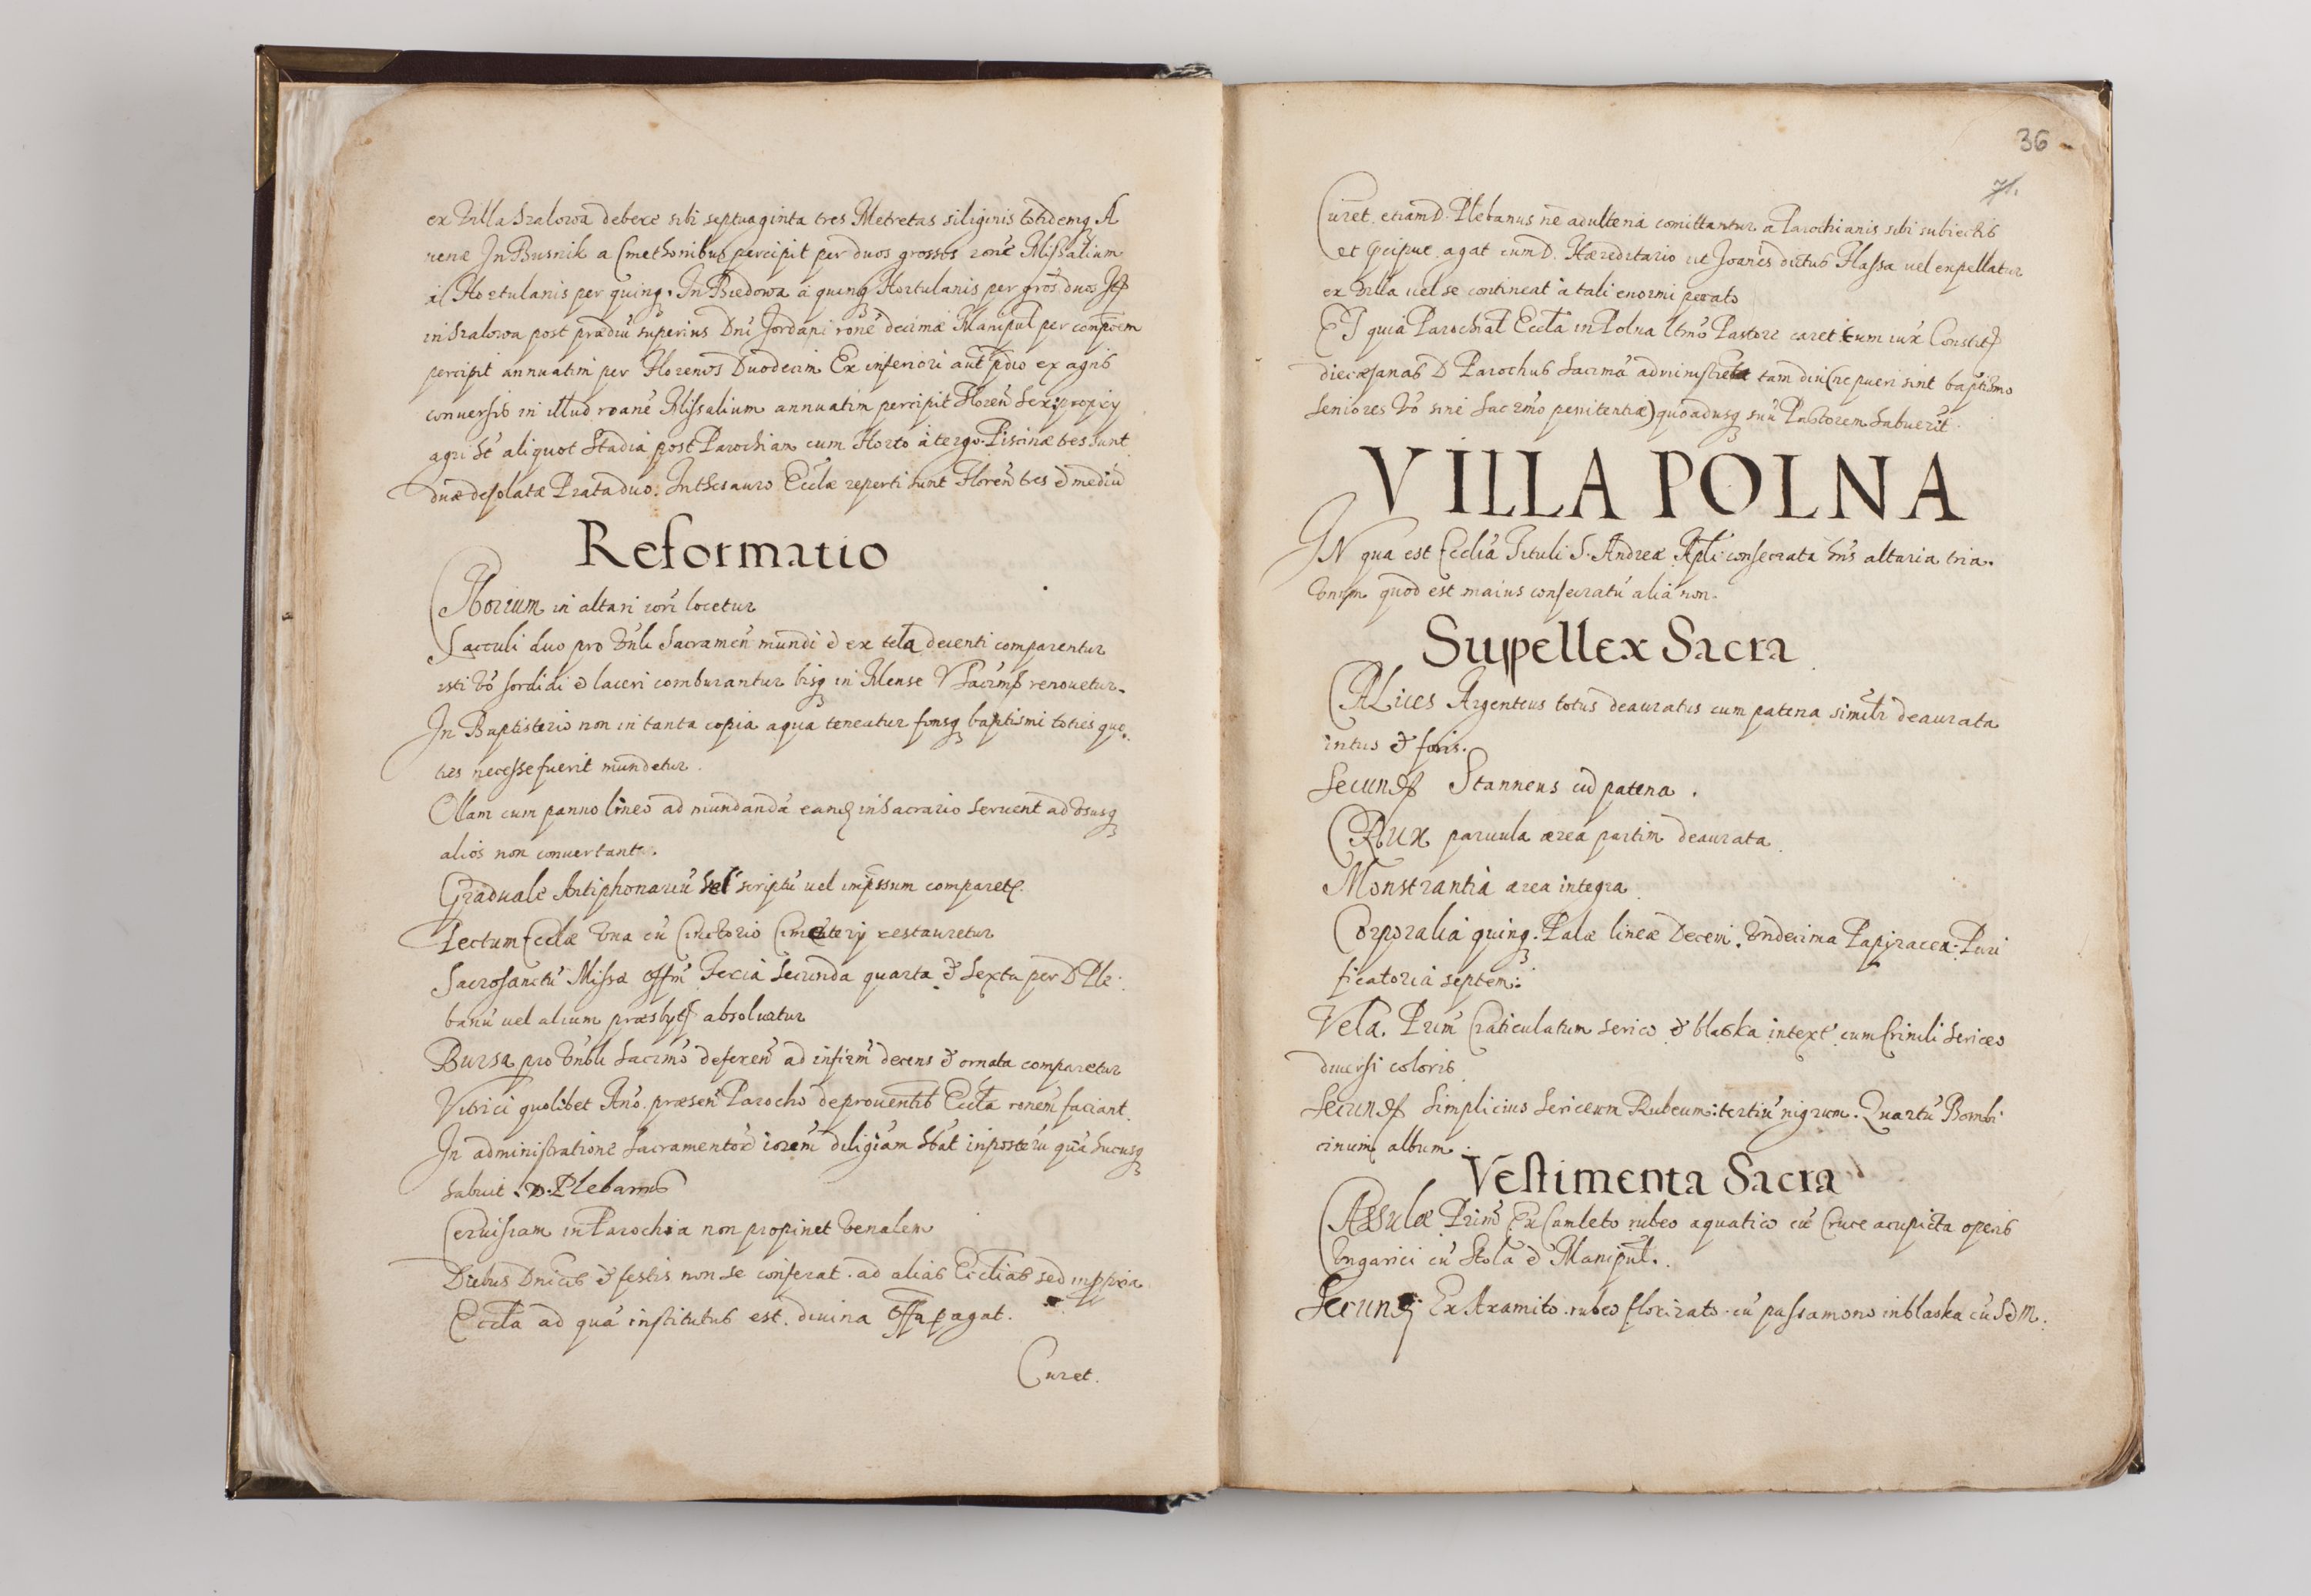 ex Villa Szalowa debere sibi septuaginta tres Metretas siliginis totidemq A
uenæ In Busnik a Cmethonibus percipit per duos grossos roné Missalium
Hortulanis per quinq. In Biedowa á quinq Hortulanis per gros duos
in Szalowa post prædiũ superius Dni Jordani roné decimæ Manipul per
percipit annuatim per Florenos Duodecim Ex inferiori aut pdio ex agris
conuersis in illud roané Missalium annuatim percipit Floren Sex
agri St aliquot Stadia post Parochiam cum Horto á tergo. Piscinæ tres sunt
duæ desolatæ Prata duo. In thesauro Ecclæ reperti sunt Florén tres & mediũ
Reformatio
CIborium in altari locetur
Sacculi duo pro Vnli Sacramén mundi & ex tela decenti comparentur
isti vó sordidi & laceri comburantur bisq in Mense renouetur.
In Baptisterio non in tanta copia aqua teneatur fonsq baptismi toties quo
ties necesse fuerit mundetur.
Ollam cum panno lineo ad mundandá in Sacrario seruent ad Vsusq
alios non conuertant.
Graduale Antiphonariũ Vel scriptũ uel impssum comparet.
Tectum Ecclæ Vna cũ Cinctorio Cimætery restauretur
Sacrosanctũ Missæ Offm Feria Secunda quarta & Sexta per D Ple
banũ uel alium præsbyt absoluatur
Bursa pro Vnbli Sacrmó deferén ad infirm decens & ornata comparetur
Vitrici quolibet Anó præsen Parocho de prouentib Ecclæ ronem faciant.
In administratione Sacramentor diligiam in posterũ quá hucusq
habuit. D. Plebanus
Ceruisiam in Parochia non propinet Venalem
Diebus Dnicis & festis non se conferat ad alias Ecclias sed in ppria
Eccla ad quá institutus est diuina Offa pagat.
Curet.
36
71.
Curet etiam D. Plebanus né adulteria comittantur a Parochianis sibi subiectis
et pcipue agat cum D. Hæreditario ut Joanes dictus Flassa uel expellatur
ex Villa uel se contineat á tali enormi peccato
ET quia Parochal Eccla in Polna Pastore caret cum iux Constit
diecæsanas D Parochus Sacrmá administret tam diu (ne pueri sint baptismo
Seniores Vó siné Sacrmo penitentiæ) quoadusq suũ Pastorem habuerit
VILLA POLNA
IN qua est Ecclia Tituli S. Andreæ Apli consecrata hns altaria tria.
Vnum quod est maius consecratũ alia non.
Supellex Sacra
CALices Argenteus totus deauratus cum patena simılr deaurata
intus & foris.
Secund Stanneus cũ patena.
CRUX paruula ærea partim deaurata.
Monstrantia ærea integra.
Corporalia quinq. Palæ lineæ Decem. Vndecima Papyracea. Puri
ficatoria septem.
Vela. Prim Craticulatum serico & blaska intext cum Crinili Sericeo
diuersi coloris
Secund Simplicius Sericeum Rubeum: tertiũ nigrum. Quartũ Bombi
cinum album.
Vestimenta Sacra
CAsulæ Prim Ex Camleto rubeo aquatico cũ Cruce acupicta operis
Vngarici cũ Stola & Manipul.
Secund Ex Axamito rubeo florizato cũ passamono in blaska cũ S & M.